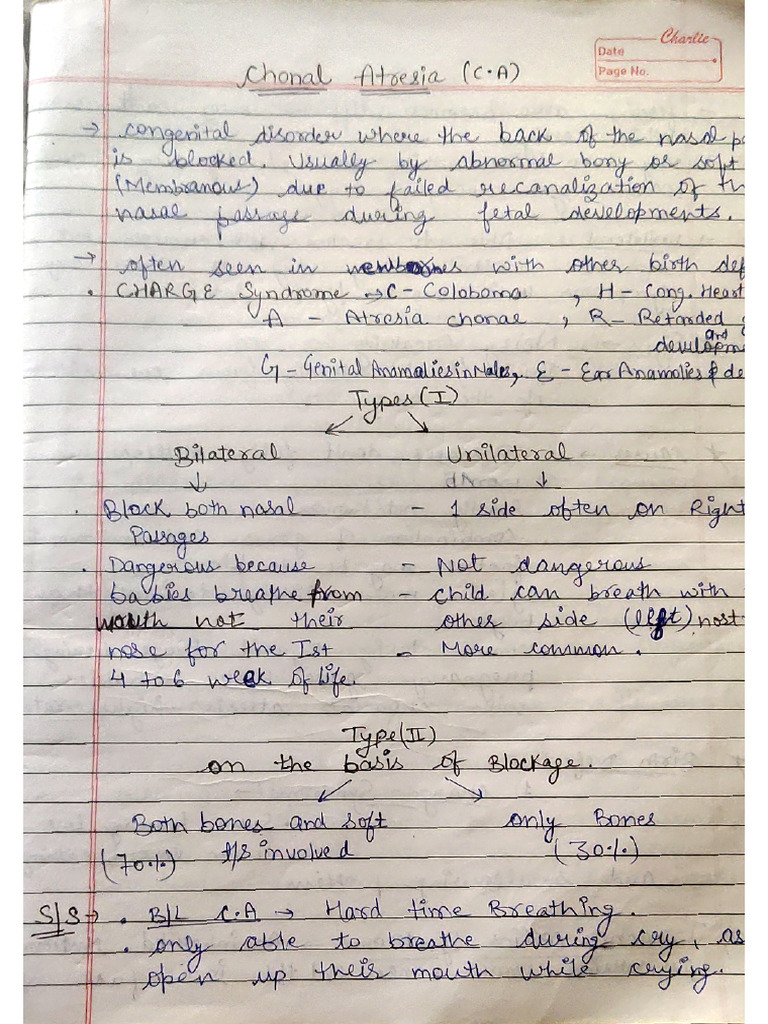 Charlie
Date
Page No.
Chonal Atresia (C.A)
→ congenital disorder where the back of the nasal
is blocked. Usually by abnormal bony or soft
(Membranous) due to failed recanalization of
nasal passage during fetal developments.
→ often seen in with other birth
• CHARGE Syndrome → C - Coloboma , H - Cong. Heart
A - Atresia chonae , R - Retarded
and
G - Genital Anamalies in Males, E - Ear Anamolies &
Types (I)
Bilateral - Unilateral
• Block both nasal - 1 side often on Right
Passages
• Dangerous because - Not dangerous
babies breathe from - child can breath with
mouth not their other side (left)
nose for the Ist - More common.
4 to 6 week of life.
Type (II)
on the basis of Blockage.
Both bones and soft only Bones
(70%) t/s involved (30%)
S/S → • B/L C.A → Hard time Breathing.
• only able to breathe during cry, as
open up their mouth while crying.